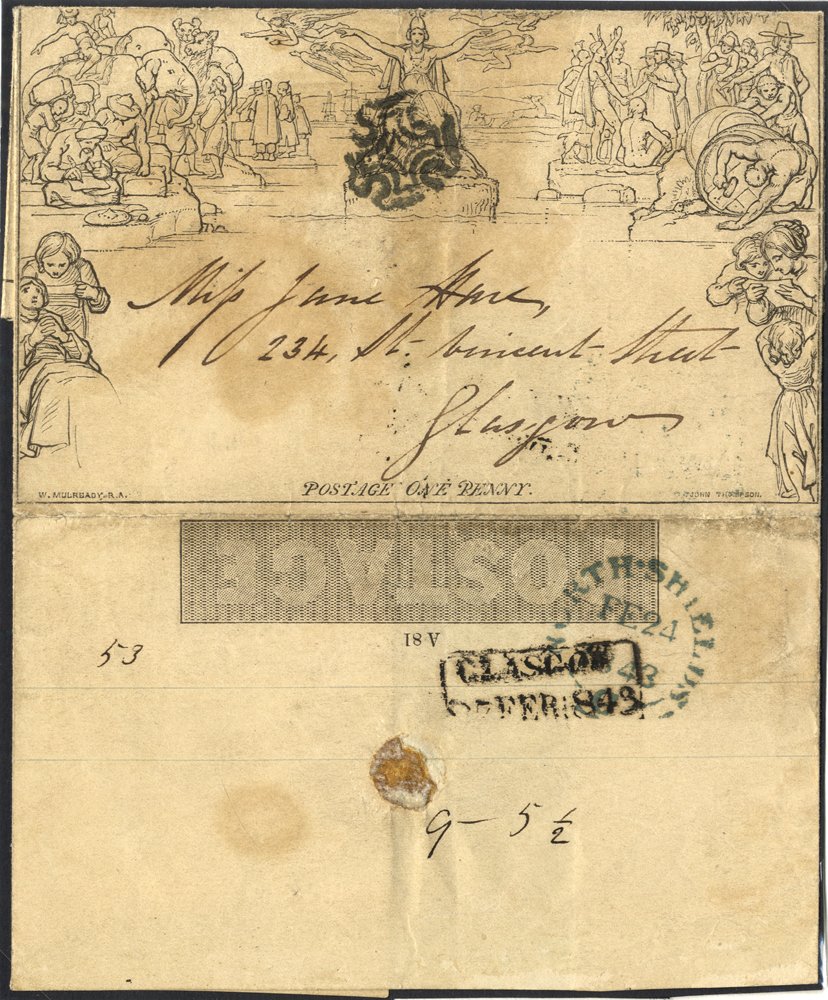 Miss Jane Hare,
234, St. Vincent Street
Glasgow
W. MULREADY. R.A.
POSTAGE ONE PENNY.
JOHN THOMPSON.
POSTAGE
A 81
NORTH-SHIELDS
FE 24
1843
53
GLASGOW
FEB 1843
9 - 5 ½